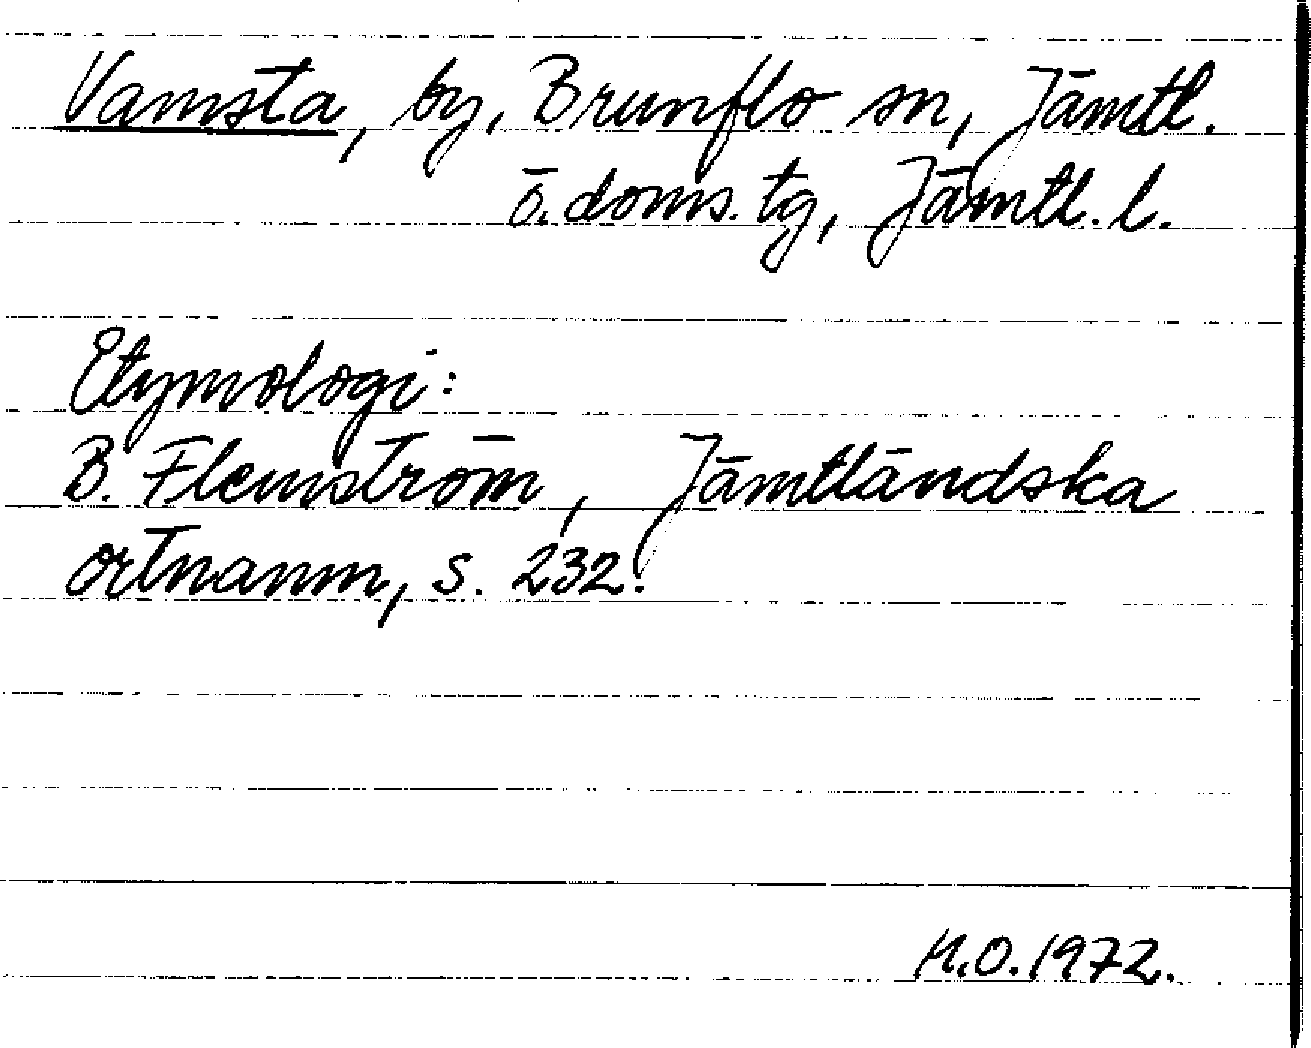 Vamsta, by, Brunflo sn, Jämtl.
ö. doms. tg, Jämtl. l.
Etymologi:
B. Flemström, Jämtländska
ortnamn, s. 232.
M.O. 1972.